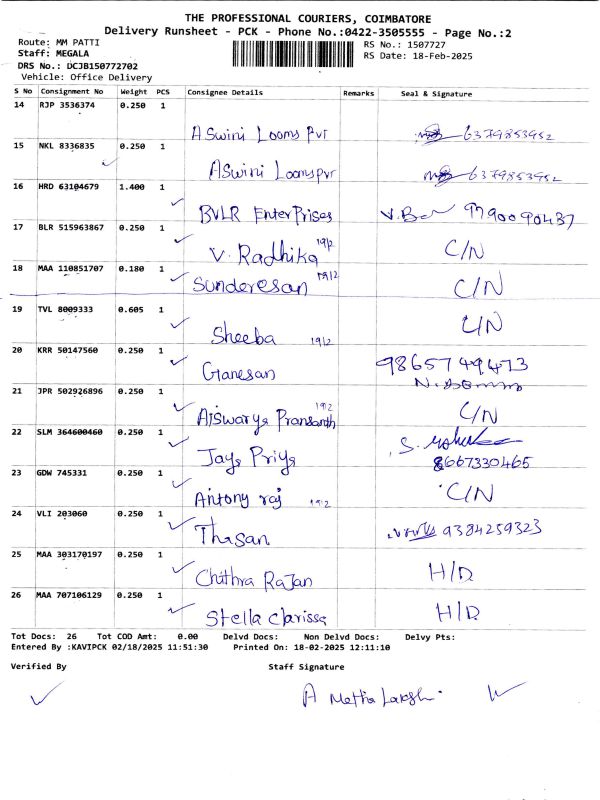 THE PROFESSIONAL COURIERS, COIMBATORE
Delivery Runsheet - PCK - Phone No.:0422-3505555 - Page No.:2
Route: MM PATTI
Staff: MEGALA
DRS No.: DCJB150772702
Vehicle: Office Delivery
RS No.: 1507727
RS Date: 18-Feb-2025
S No Consignment No Weight PCS Consignee Details Remarks Seal & Signature
14 RJP 3536374 0.250 1
ASwini Looms Pvt 6379853952
15 NKL 8336835 0.250 1
ASwini Looms pvt 6379853952
16 HRD 63104679 1.400 1
BVLR EnterPrises 9790090437
17 BLR 515963867 0.250 1
V. Radhika 19/2 C/N
18 MAA 110851707 0.180 1
Sunderesan 19/2 C/N
19 TVL 8009333 0.605 1
Sheeba 19/2 C/N
20 KRR 50147560 0.250 1
Ganesan 9865749473
21 JPR 502926896 0.250 1
Aiswarya Prasanth 19/2 C/N
22 SLM 364600460 0.250 1
Jaya Priya 8667330465
23 GDW 745331 0.250 1
Antony raj 19/2 C/N
24 VLI 203060 0.250 1
Thasan 9384259323
25 MAA 303170197 0.250 1
Chithra RaJan H/D
26 MAA 707106129 0.250 1
Stella clarissa H/D
Tot Docs: 26 Tot COD Amt: 0.00 Delvd Docs: Non Delvd Docs: Delvy Pts:
Entered By :KAVIPCK 02/18/2025 11:51:30 Printed On: 18-02-2025 12:11:10
Verified By Staff Signature